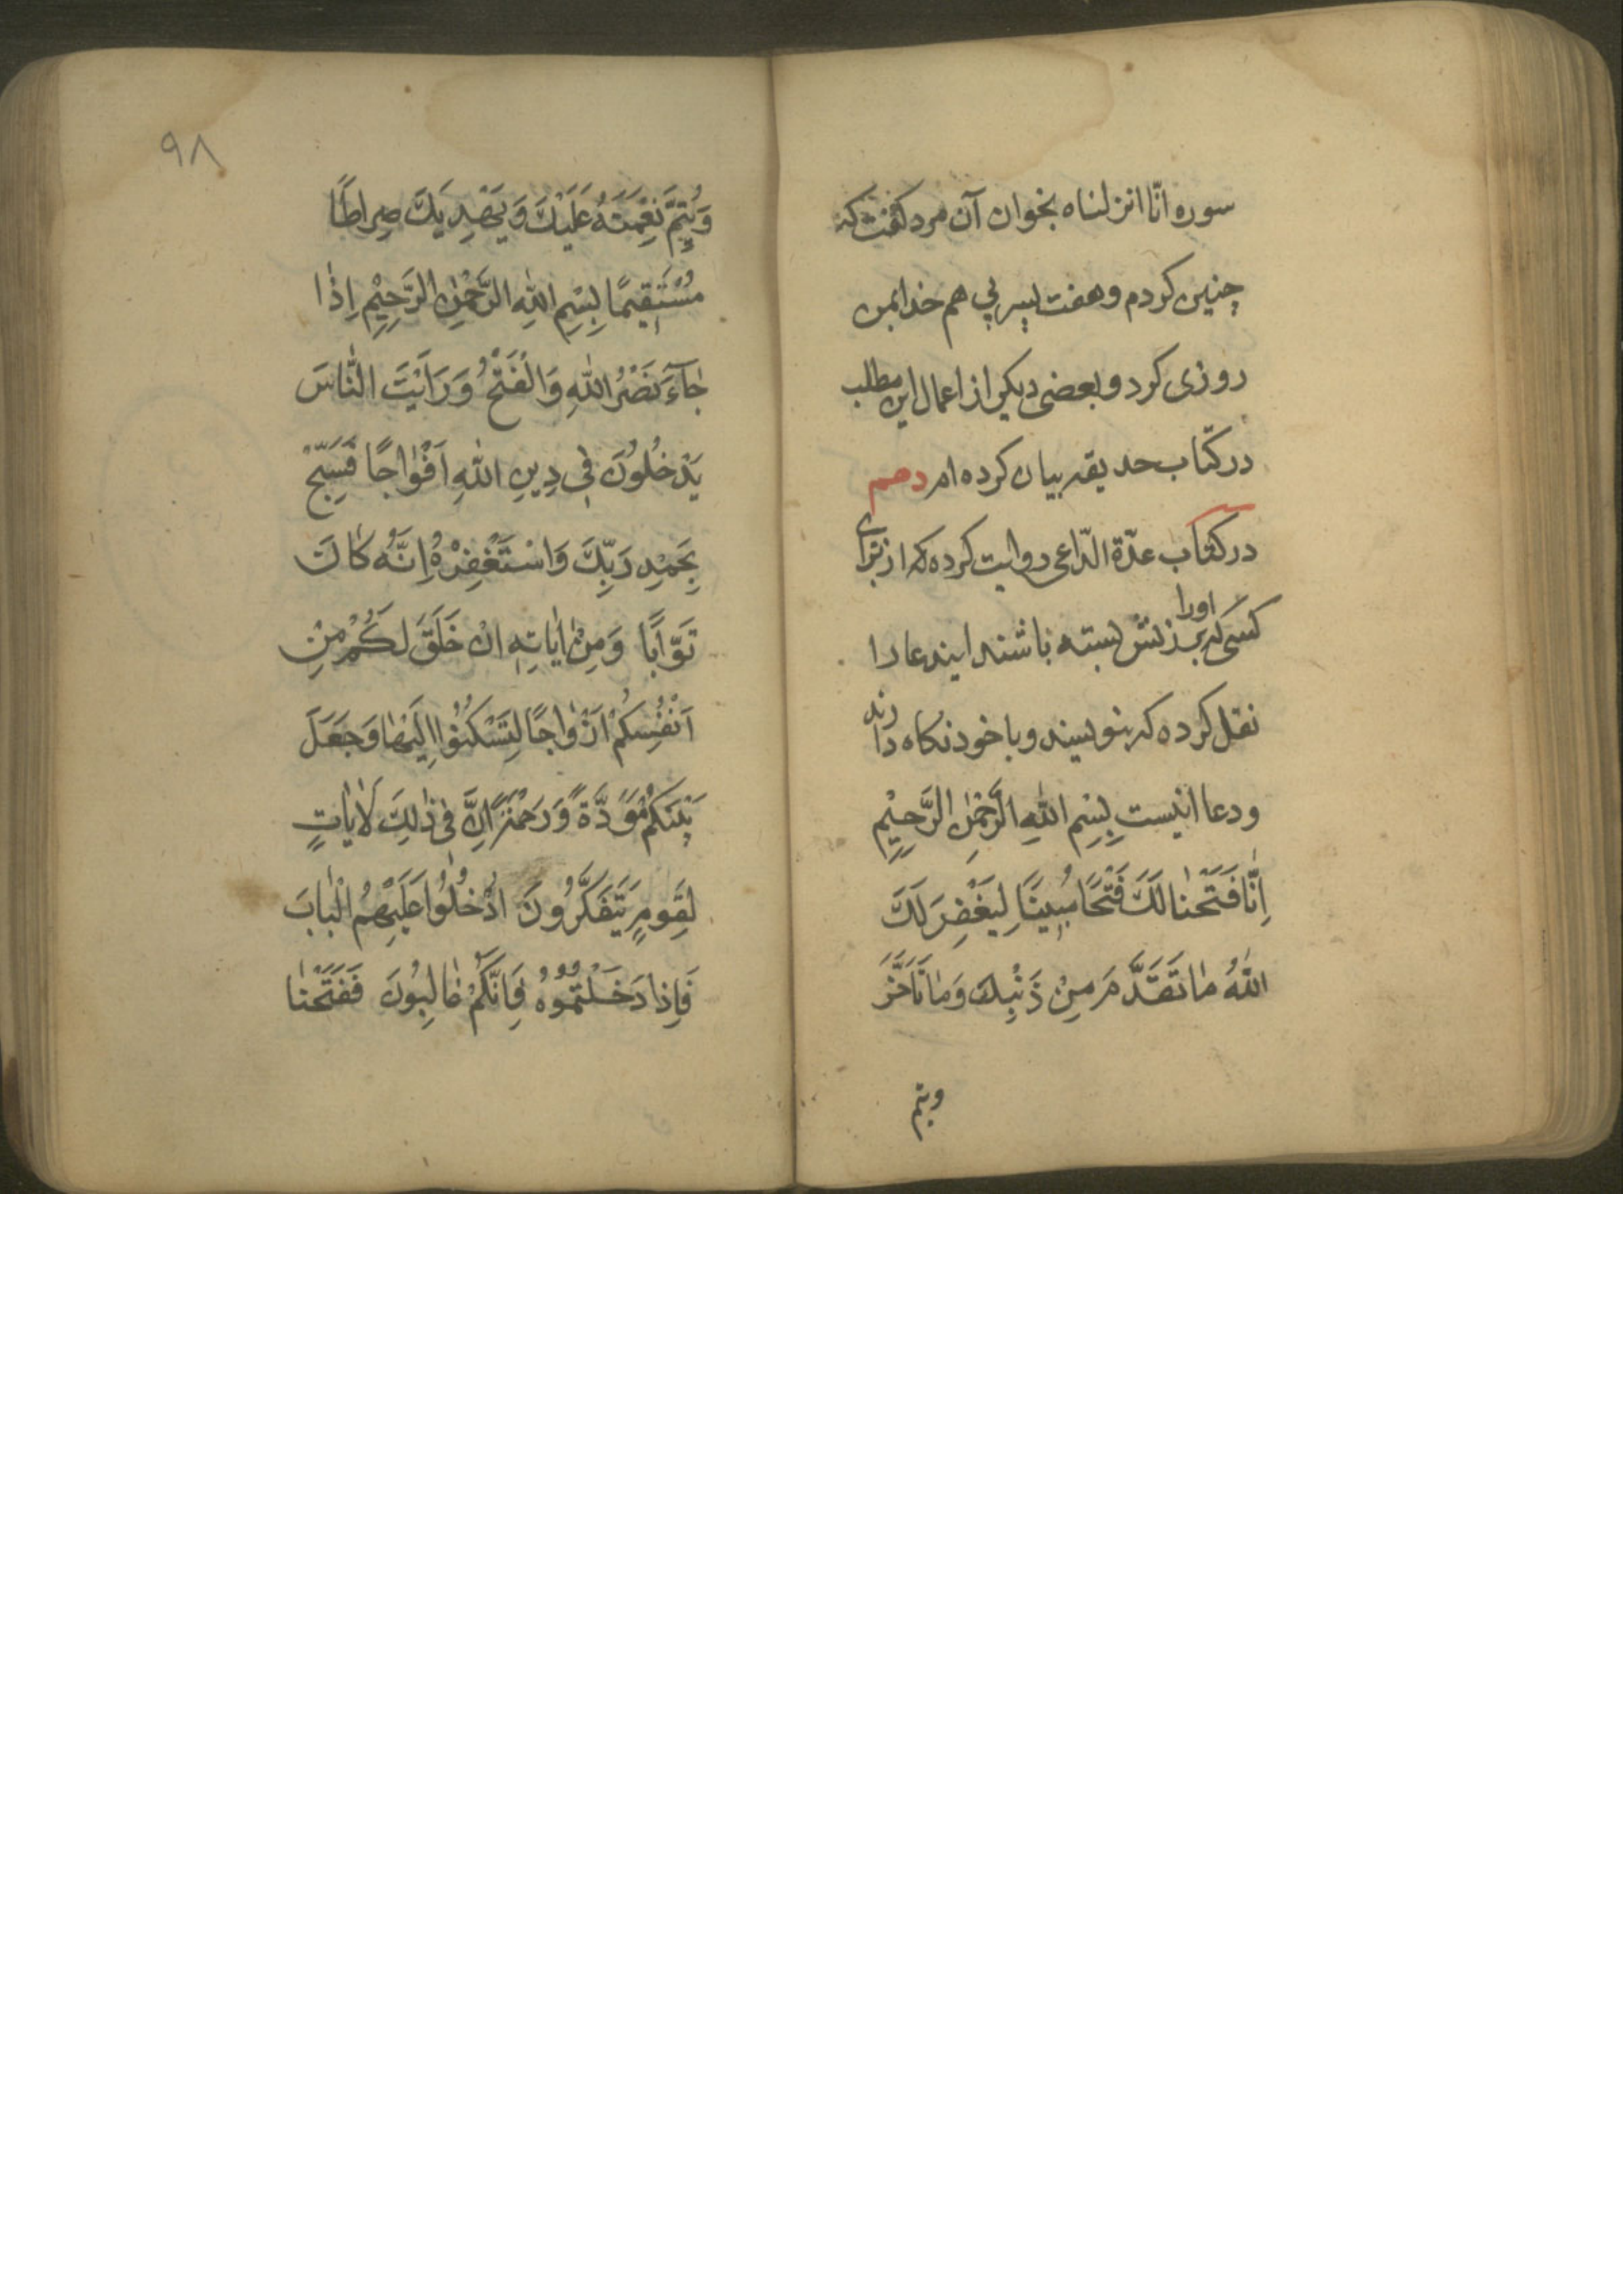 سوره انّا انزلناه بخوان آن مرد کفت که
چنین کردم و هفت پسر پی هم خدا بمن
روزی کرد و بعضی دیکر از اعمال این مطلب
در کتاب حدیقه بیان کرده ام دهم
در کتاب عدّة الدّاعی روایت کرده که از برای
کسی که بر زنش بسته باشند ایندعا را
اورا
نقل کرده که بنویسند و با خود نکاه دارند
و دعا اینست بِسْمِ اللهِ الرَّحْمٰنِ الرَّحِیْمِ
اِنّٰا فَتَحْنٰا لَكَ فَتْحًا مُبِینًا لِیَغْفِرَ لَكَ
اللهُ مٰا تَقَدَّمَ مِنْ ذَنْبِكَ وَمٰا تَاَخَّرَ
ویتم
۹۸
وَیُتِمَّ نِعْمَتَهُ عَلَیْكَ وَیَهْدِیَكَ صِراطًا
مُسْتَقِیمًا بِسْمِ اللهِ الرَّحْمٰنِ الرَّحِیْمِ اِذٰا
جٰآءَ نَصْرُ اللهِ وَالْفَتْحُ وَرَاَیْتَ النّٰاسَ
یَدْخُلُونَ فِی دِینِ اللهِ اَفْوٰاجًا فَسَبِّحْ
بِحَمْدِ رَبِّكَ وَاسْتَغْفِرْهُ اِنَّهُ كٰانَ
تَوّٰابًا وَمِنْ اٰیٰاتِهِ اَنْ خَلَقَ لَكُمْ مِنْ
اَنْفُسِكُمْ اَزْوٰاجًا لِتَسْكُنُوا اِلَیْهٰا وَجَعَلَ
بَیْنَكُمْ مَوَدَّةً وَرَحْمَةً اِنَّ فِی ذٰلِكَ لَاٰیٰاتٍ
لِقَومٍ یَتَفَكَّرُونَ اُدْخُلُوا عَلَیْهِمُ الْبٰابَ
فَاِذا دَخَلْتُمُوُهُ فَاِنَّكُمْ غٰالِبُونَ فَفَتَحْنٰا